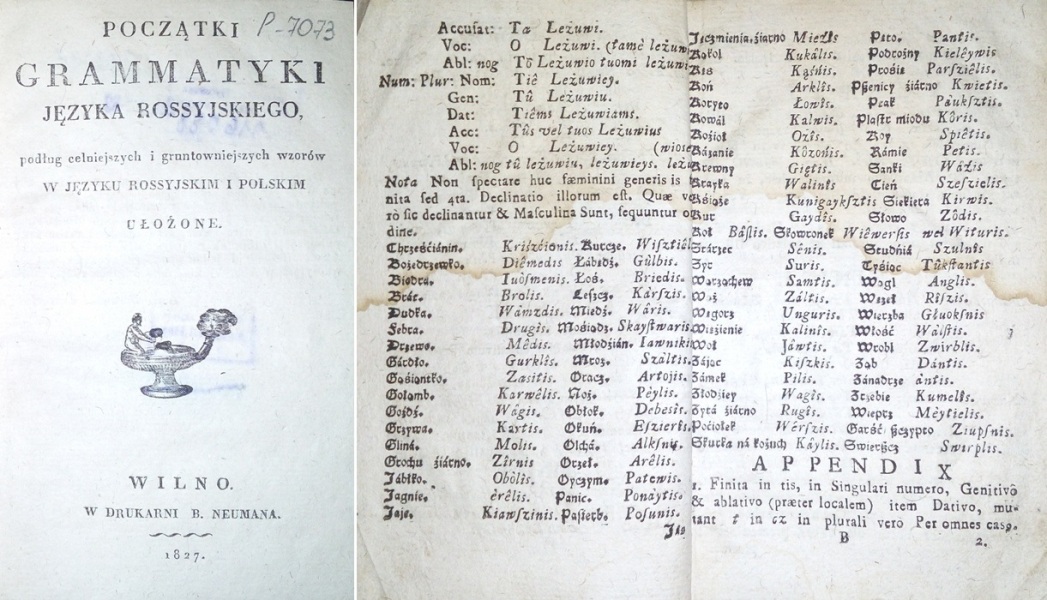 POCZĄTKI
P-7073
GRAMMATYKI
JĘZYKA ROSSYJSKIEGO,
podług celniejszych i gruntowniejszych wzorów
W JĘZYKU ROSSYJSKIM I POLSKIM
UŁOŻONE.
WILNO.
W DRUKARNI B. NEUMANA.
1827.
Accusat: Ta Leżuwi.
Voc: O Leżuwi. (tamè leżuw
Abl: nog Tô Leżuwio tuomi leżuw
Num: Plur: Nom: Tiê Leżuwiey.
Gen: Tû Leżuwiu.
Dat: Tiêms Leżuwiams.
Acc: Tûs vel tuos Leżuwius
Voc: O Leżuwiey. (wiose
Abl: nog tû leżuwiu, leżuwieys. leżu
Nota Non spectare huc fæminini generis is
nita sed 4ta. Declinatio illorum est. Quæ ve
rò sic declinantur & Masculina Sunt, sequuntur or
dine.
Chrześćiánin. Krißćionis. Kurcze. Wisztiêl
Bożedrzewko. Diêmedis Łábędź. Gûlbis.
Biodrá. Łoś. Briedis.
Brát. Brolis. Leszcz. Kárszis.
Dudká. Wâmzdis. Miedź. Wâris.
Febrá. Drugis. Mośiądz. Skaystwaris
Drzewo. Mêdis. Młodźián. Iawnikis
Gárdło. Gurklîs. Mroz. Száltis.
Gąśiorko. Zasitis. Oracz. Artojis.
Gołomb. Karwêlis. Noż. Pèylis.
Gożdź. Wâgis. Obłok. Debesîs.
Grzywá. Kartis. Okuń. Eszierîs.
Gliná. Molis. Olchá. Alksnis.
Grochu źiárno. Zîrnis Orzeł. Arêlis.
Jábłko. Obòlis. Oyczym. Patewis.
Jagnie. èrêlis. Panic. Ponáytis.
Jaje. Kiawszinis. Pásierb. Posunis.
Ję
Jęczmienia źiárno Mieżîs Pęto. Pantis.
Kąkol Kukâlis. Podrożny Kielêywis
Kęs Kąśnis. Prośię Parsziêlis.
Koń Arklîs. Pszenicy źiárno Kwietis.
Koryto Łowîs. Ptak Páukßtis.
Kowál Kalwis. Plastr miodu Kôris.
Kozioł Ożîs. Roy Spiêtis.
Kázanie Kôzońis. Rámie Petis.
Krewny Giętis. Sanki Wáżis
Krayka Walinîs Cień Szeszielis.
Kśiąże Kunigaykßtis Siekierá Kirwis.
Kur Gaydîs. Słowo Zôdis.
Kół Báslis. Skowronek Wiêwersis wel Wituris.
Stárzec Sênis. Studniá Szulnîs
Syr Suris. Tyśiąc Tûkßtantis
Warząchew Samtis. Węgl Anglis.
Wąż Záltis. Węzeł Rîszis.
Węgorz Unguris. Wierzba Głuoksnis
Więźienie Kalinîs. Włość Wâlstis.
Woł Jáwtis. Wrobl Zwirblis.
Zájąc Kiszkis. Ząb Dántis.
Zámek Pilis. Zánadrze ântis.
Złodźiey Wagîs. Zrzebie Kumelîs.
Zytá źiárno Rugîs. Wieprz Mèytielis.
Poćiołek Wérszis. Garść szczypto Ziupsnis.
Skurka ná kożuch Káylis. Swierszcz Swirplis.
APPENDIX
1. Finita in tis, in Singulari numero, Genitivô
& ablativo (præter localem) item Dativo, mu-
tant t in cz in plurali verò Per omnes casₒ.
B 2.